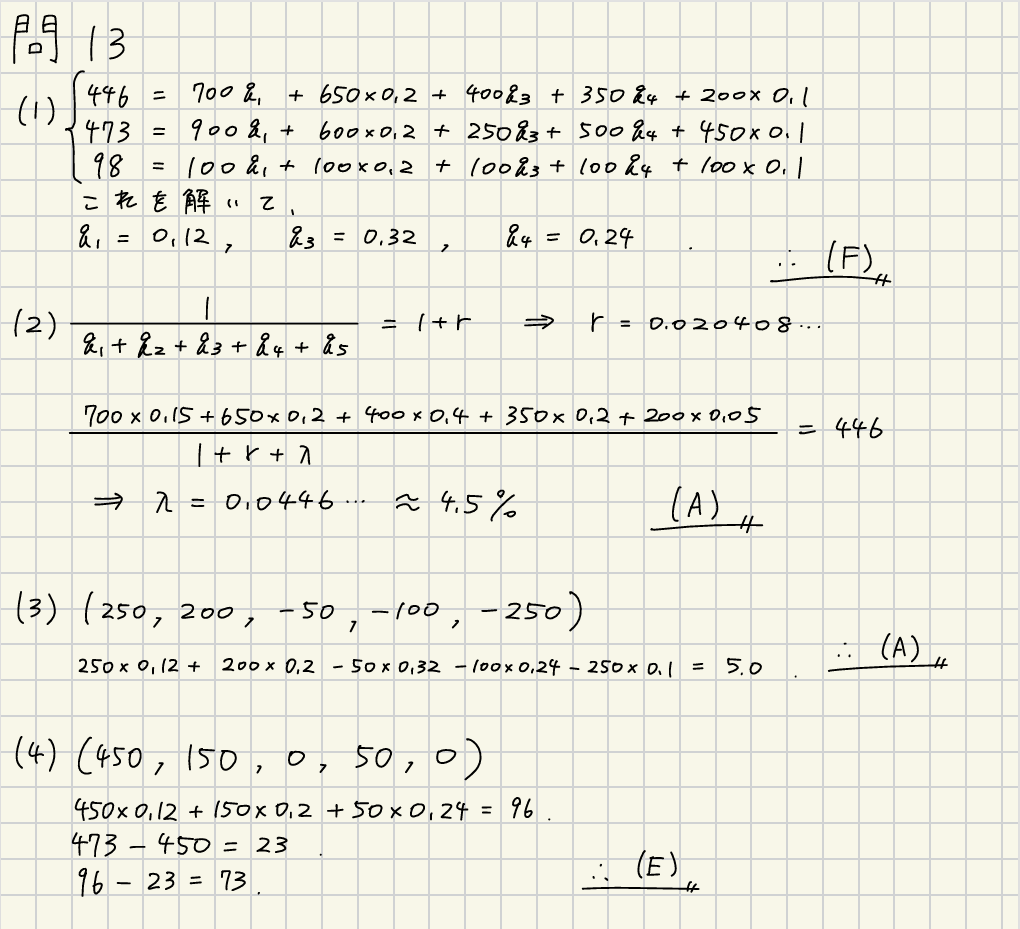 問 13
(1) 446 = 700 q₁ + 650×0.2 + 400q₃ + 350 q₄ + 200× 0.1
473 = 900q₁ + 600×0.2 + 250q₃ + 500q₄ + 450×0.1
98 = 100q₁ + 100×0.2 + 100q₃ + 100q₄ + 100×0.1
これを解いて、
q₁ = 0.12 , q₃ = 0.32 , q₄ = 0.24 .
∴ (F)
(2) 1 / (q₁ + q₂ + q₃ + q₄ + q₅) = 1+r ⇒ r = 0.020408…
(700×0.15+650×0.2 + 400×0.4 + 350×0.2 + 200×0.05) / (1+r+λ) = 446
⇒ λ = 0.0446… ≈ 4.5%
(A)
(3) (250, 200, -50, -100, -250)
250×0.12 + 200×0.2 -50×0.32 -100×0.24 -250×0.1 = 5.0 .
∴ (A)
(4) (450, 150, 0, 50, 0)
450×0.12 + 150×0.2 + 50×0.24 = 96 .
473 - 450 = 23 .
96 - 23 = 73 .
∴ (E)